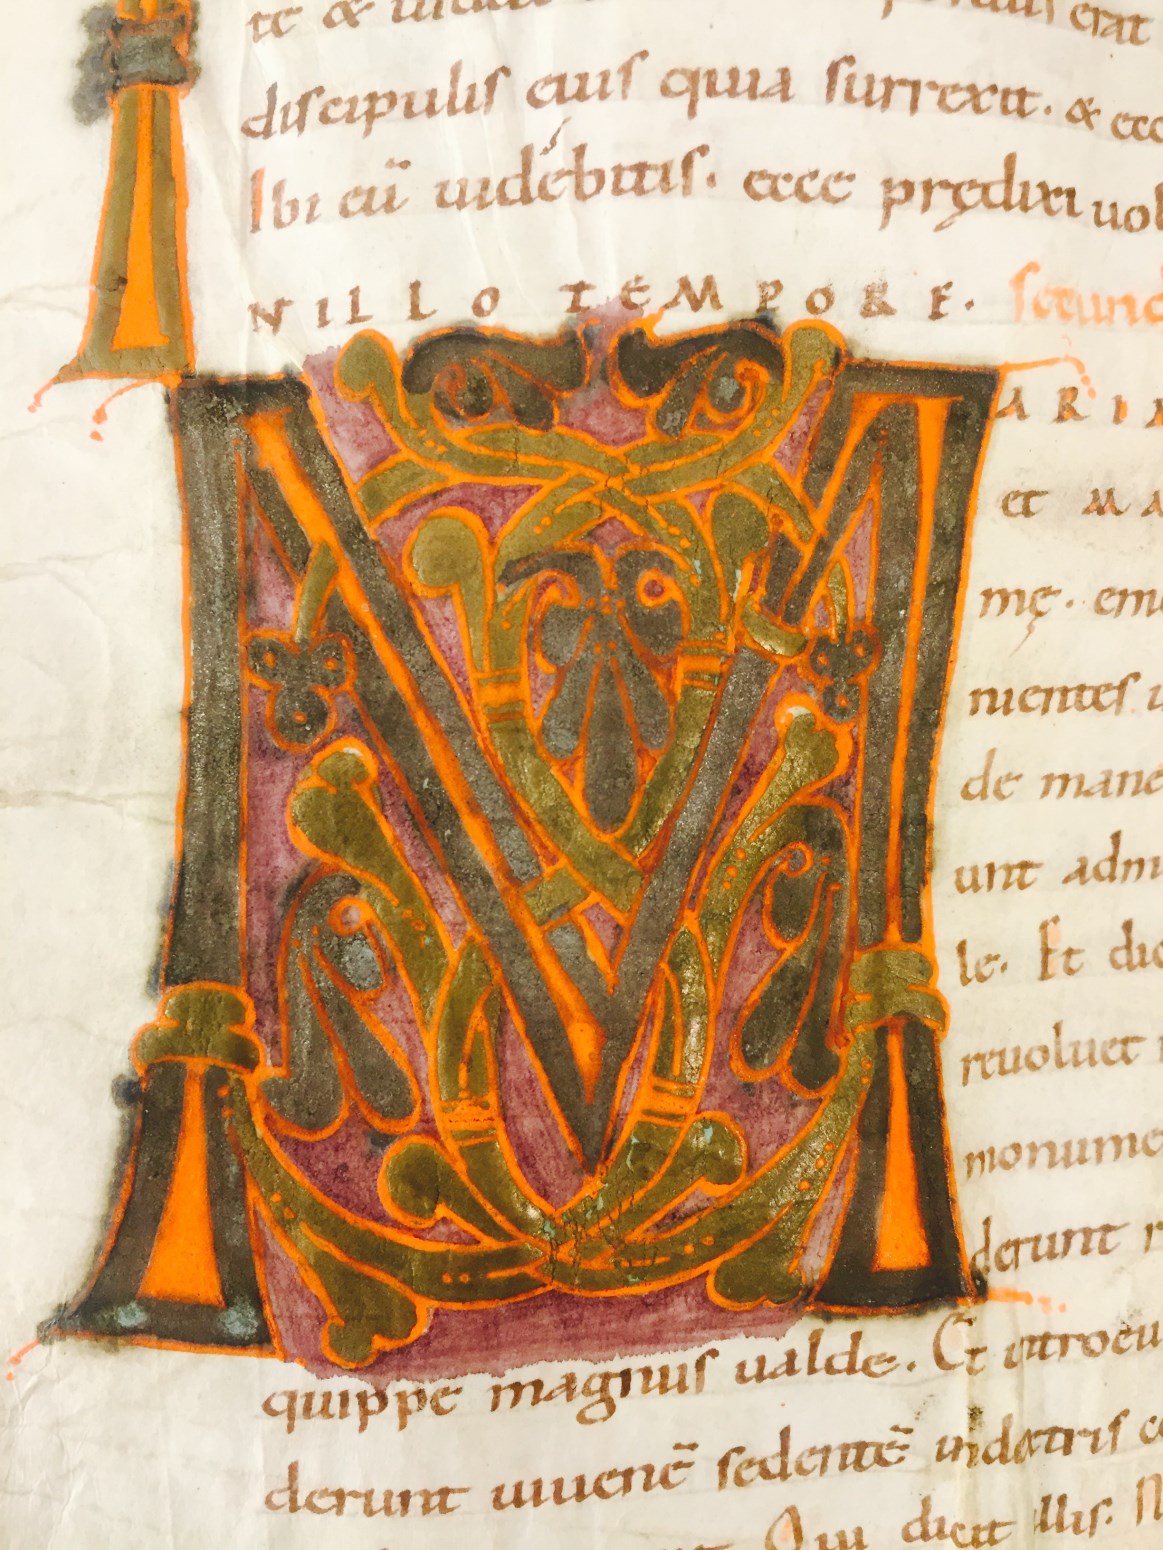 te & 
erat
discipulis eius quia surrexit. & ecce
Ibi eū uidebitis. ecce prędixi uob
NILLO TEMPORE. secund
M ARIA
et MA
mę. eme
nientes
de mane
unt adm
le. Et dic
reuoluet
monume
derunt r
quippe magnus ualde. Et introeu
derunt iuuenē sedentē indextris
Qui dicit illis. N